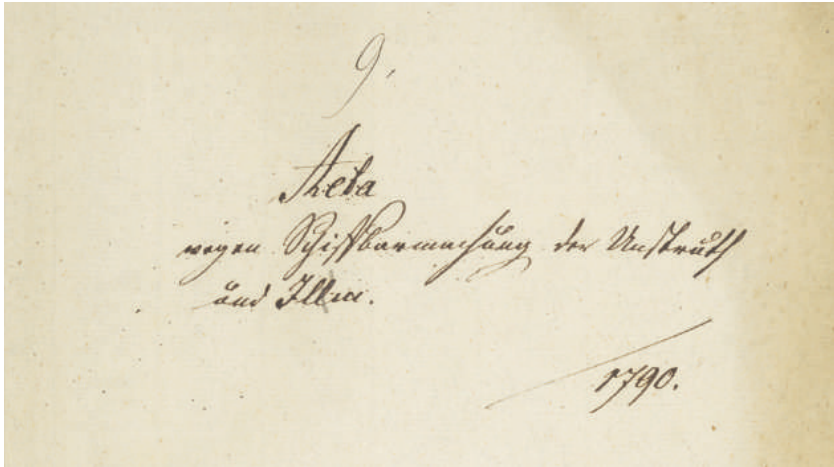 9.
Acta
wegen Schiffbarmachung der Unstruth
und Illm.
1790.